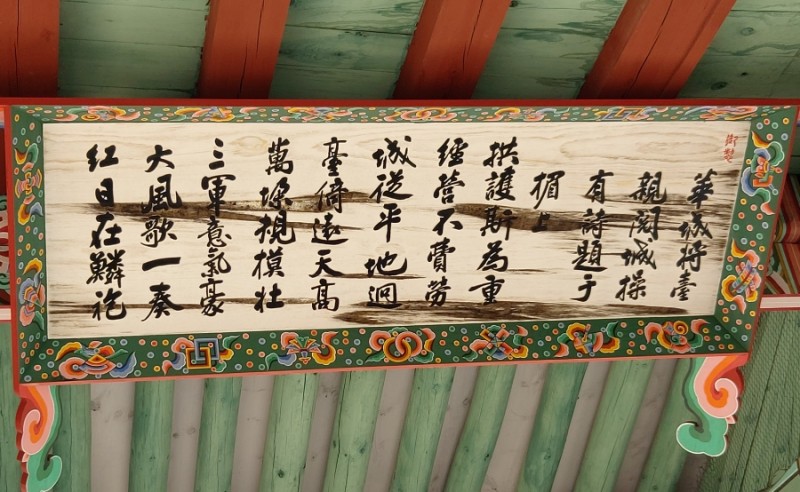 御製
華城將臺
親閱城操
有詩題于
楣上
拱護斯爲重
經營不費勞
城從平地迥
臺倚遠天高
萬垛規模壯
三軍意氣豪
大風歌一奏
紅日在鱗袍